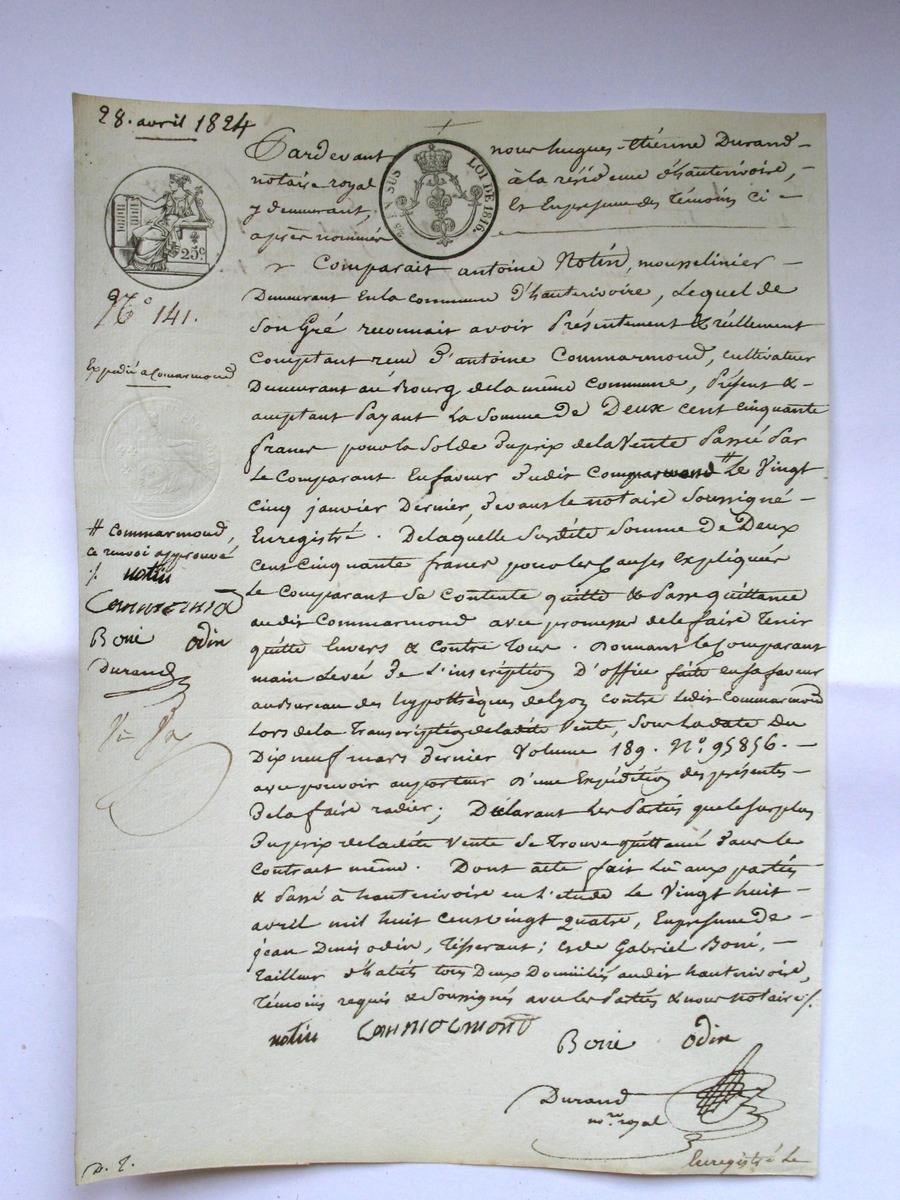 28. avril 1824
Pardevant nous hugues-étienne Durand -
notaire royal à la résidence d'hauterivoire,
y demeurant, & en presence des témoins ci -
après nommés
Comparait antoine Notin, mousselinier -
Demeurant en la commune d'hauterivoire, Lequel de
son Gré reconnait avoir Présentement & réellement
comptant reçu d'antoine Commarmond, cultivateur
Demeurant au Bourg de la même commune, Présent & -
acceptant Payant La Somme de Deux cent cinquante
francs pour la Solde du prix de la Vente Passé Par
Le Comparant En faveur dudit Commarmond # Le Vingt
Cinq janvier Dernier, devant le notaire Soussigné -
Enregistré. De laquelle Susdite Somme de Deux
Cent Cinquante francs pour les Causes Expliquées
Le comparant Se Contente quitte & Passe quittance
audit Commarmond avec promesse de le faire Tenir
quitte Envers & Contre Tous. Donnant le Comparant
main Levée de L'inscription D'office faite en sa faveur
au Bureau des hypothèques de Lyon contre Ledit Commarmond
Lors de la Transcription de ladite Vente, sous La date Du
Dix neuf mars dernier Volume 189. N.o 95856. -
avec pouvoir au porteur D'une Expédition des présentes -
De la faire radier; Déclarant Les Parties que le surplus
Du prix de ladite Vente Se Trouve quittancé dans le
Contrat même. Dont acte fait Lu aux parties
& Passé à hauterivoire en l'étude Le Vingt huit -
avril mil huit cent vingt quatre, En presence de -
jean Denis odin, Tisserant; & de Gabriel Boné, -
Tailleur d'habits tous Deux Domiciliés audit hauterivoire,
Témoins requis & Soussignés avec les Parties & nous Notaire /.
notin Commormond
Boné odin
Durand
n.re royal
Enregistré Le
25 C. EN SUS LOI DE 1816.
25c
N.o 141.
Expédié a Comarmond
# Commarmond,
ce renvoi approuvé
./. notin
Commormond
Boné odin
Durand
D. J.